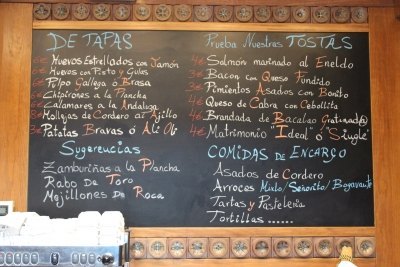 DE TAPAS
6€ Huevos Estrellados con Jamón
6€ Huevos con Pisto y Gulas
Pulpo Gallega ó Brasa
6€ Chipirones a la Plancha
6€ Calamares a la Andaluza
8€ Mollejas de Cordero al Ajillo
3€ Patatas Bravas ó Ali Oli
Sugerencias
Zamburiñas a la Plancha
Rabo De Toro
Mejillones De Roca
Prueba Nuestras TOSTAS
4€ Salmón marinado al Eneldo
3€ Bacon con Queso Fundido
3€ Pimientos Asados con Bonito
4€ Queso de Cabra con Cebollita
4€ Brandada de Bacalao Gratinada
4€ Matrimonio "Ideal" ó "Single"
COMIDAS DE ENCARGO
Asados de Cordero
Arroces Mixto/Señorito/Bogavante
Tartas y Pastelería
Tortillas ......